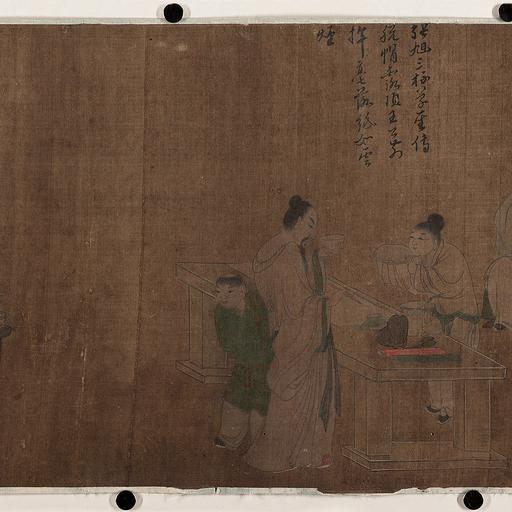 張旭三杯草聖傳
脫帽露頂王公前
揮毫落紙如雲
煙